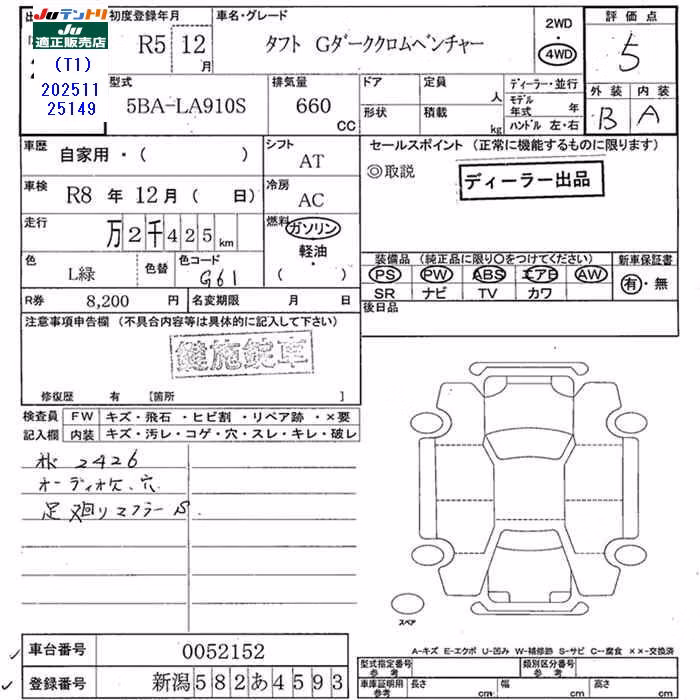 JUテントリ
JU
適正販売店
(T1)
202511
25149
初度登録年月
R5 12月
車名・グレード
タフト Gダーククロムベンチャー
2WD
・
4WD
評価点
5
外装 内装
B A
型式
5BA-LA910S
排気量
660
CC
ドア
形状
定員 人
積載 kg
ディーラー・並行
モデル年式 年
ハンドル 左・右
車歴 自家用・( )
シフト AT
車検 R8 年 12月 ( 日)
冷房 AC
走行 万2千425km
燃料 ガソリン
軽油・
( )
色 L緑 色替 色コード G61
R券 8,200 円 名変期限 月 日
セールスポイント (正常に機能するものに限ります)
◎取説
ディーラー出品
装備品 (純正品に限り○をつけてください) 新車保証書
PS PW ABS エアB AW 有・無
SR ナビ TV カワ
後日品
注意事項申告欄 (不具合内容等は具体的に記入して下さい)
鍵施錠車
修復歴 有 [箇所 ]
検査員 FW キズ・飛石 ・ヒビ割 ・リペア跡 ・×要
記入欄 内装 キズ・汚レ・コゲ・穴・スレ・キレ・破レ
2426
オーディオ欠、穴
足廻りマフラーS
スペア
A-キズ E-エクボ U-凹み W-補修跡 S-サビ C-腐食 ××-交換済
車台番号 0052152
登録番号 新潟582あ4593
型式指定番号 参考 類別区分番号 参考
車庫証明用 参考 長さ cm 幅 cm 高さ cm